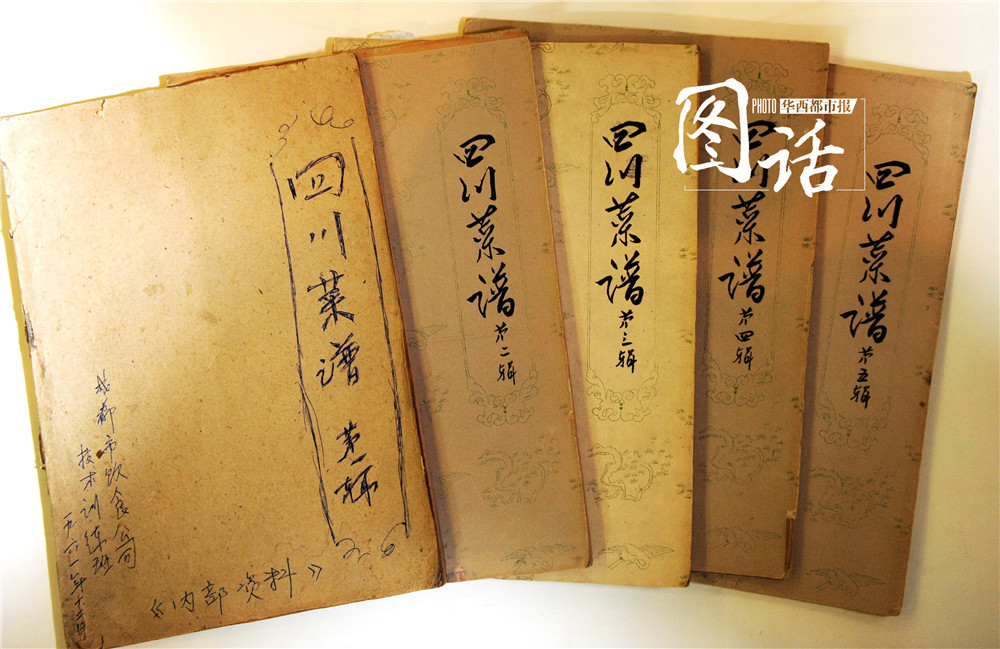 四川菜谱 第一辑
成都市饮食公司
技术训练班
一九六一年十二月
《内部资料》
四川菜谱 第二辑
四川菜谱 第三辑
四川菜谱 第四辑
四川菜谱 第五辑
PHOTO 华西都市报
图话